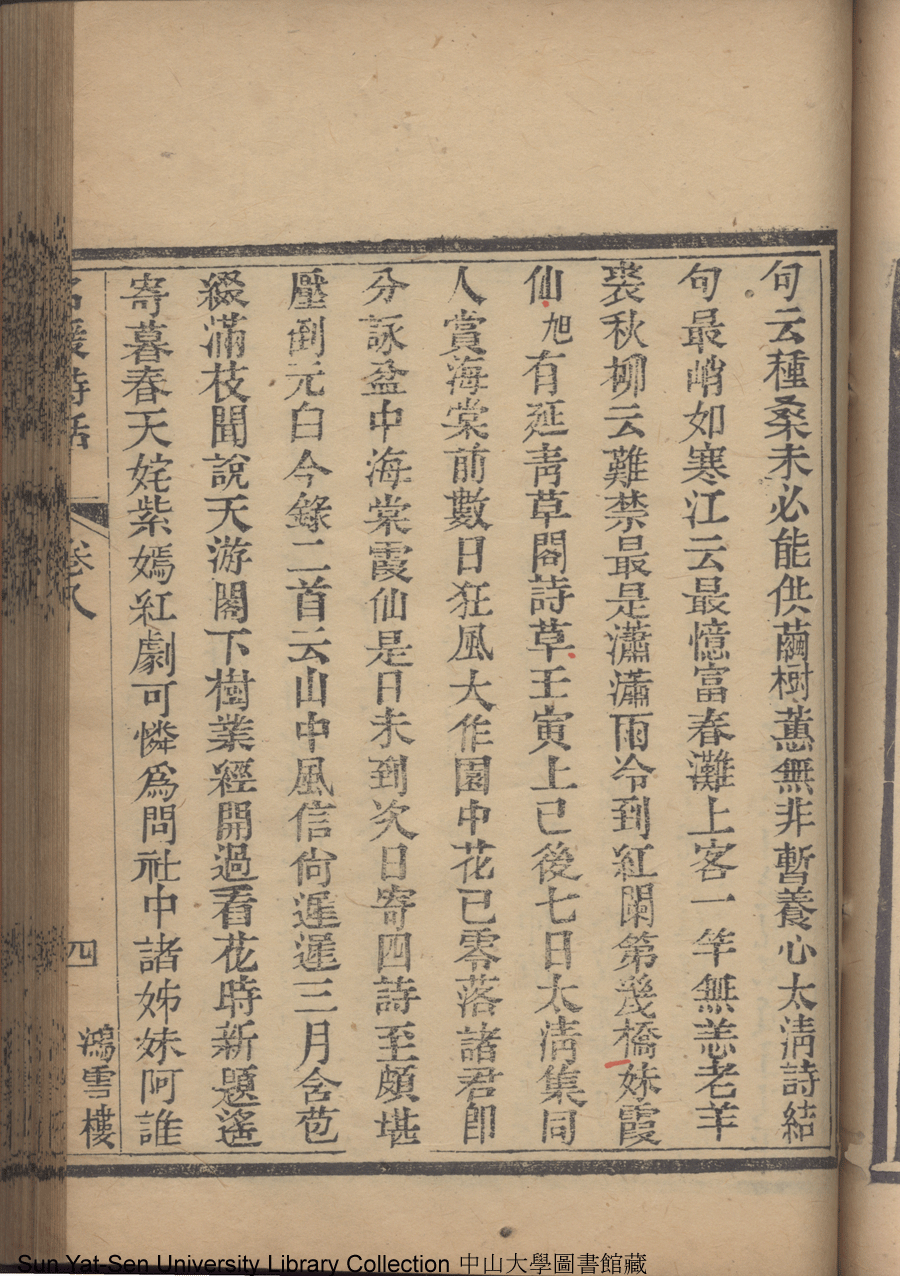 句云種桑未必能供繭樹蕙無非暫養心太淸詩結
句最峭如寒江云最憶富春灘上客一竿無恙老羊
裘秋柳云難禁最是瀟瀟雨冷到紅闌第幾橋妹霞
仙旭有延靑草閣詩草壬寅上巳後七日太淸集同
人賞海棠前數日狂風大作園中花已零落諸君卽
分詠盆中海棠霞仙是日未到次日寄四詩至頗堪
壓到元白今錄二首云山中風信尙遲遲三月含苞
綴滿枝聞說天游閣下樹業經開過看花時新題遙
寄暮春天姹紫嫣紅劇可憐爲問社中諸姊妹阿誰
名媛詩話 卷八 四 鴻雪樓
Sun Yat-Sen University Library Collection 中山大學圖書館藏